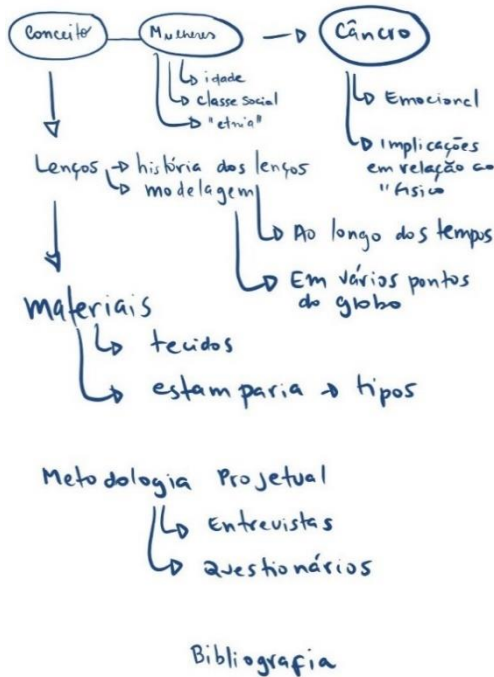 Conceito Mulheres → Câncro
idade
classe social
"etnia"
Emocional
Implicações
em relação ao
"físico
Lenços → história dos lenços
modelagem
Ao longo dos tempos
Em vários pontos
do globo
materiais
tecidos
estamparia → tipos
Metodologia Projetual
Entrevistas
Questionários
Bibliografia